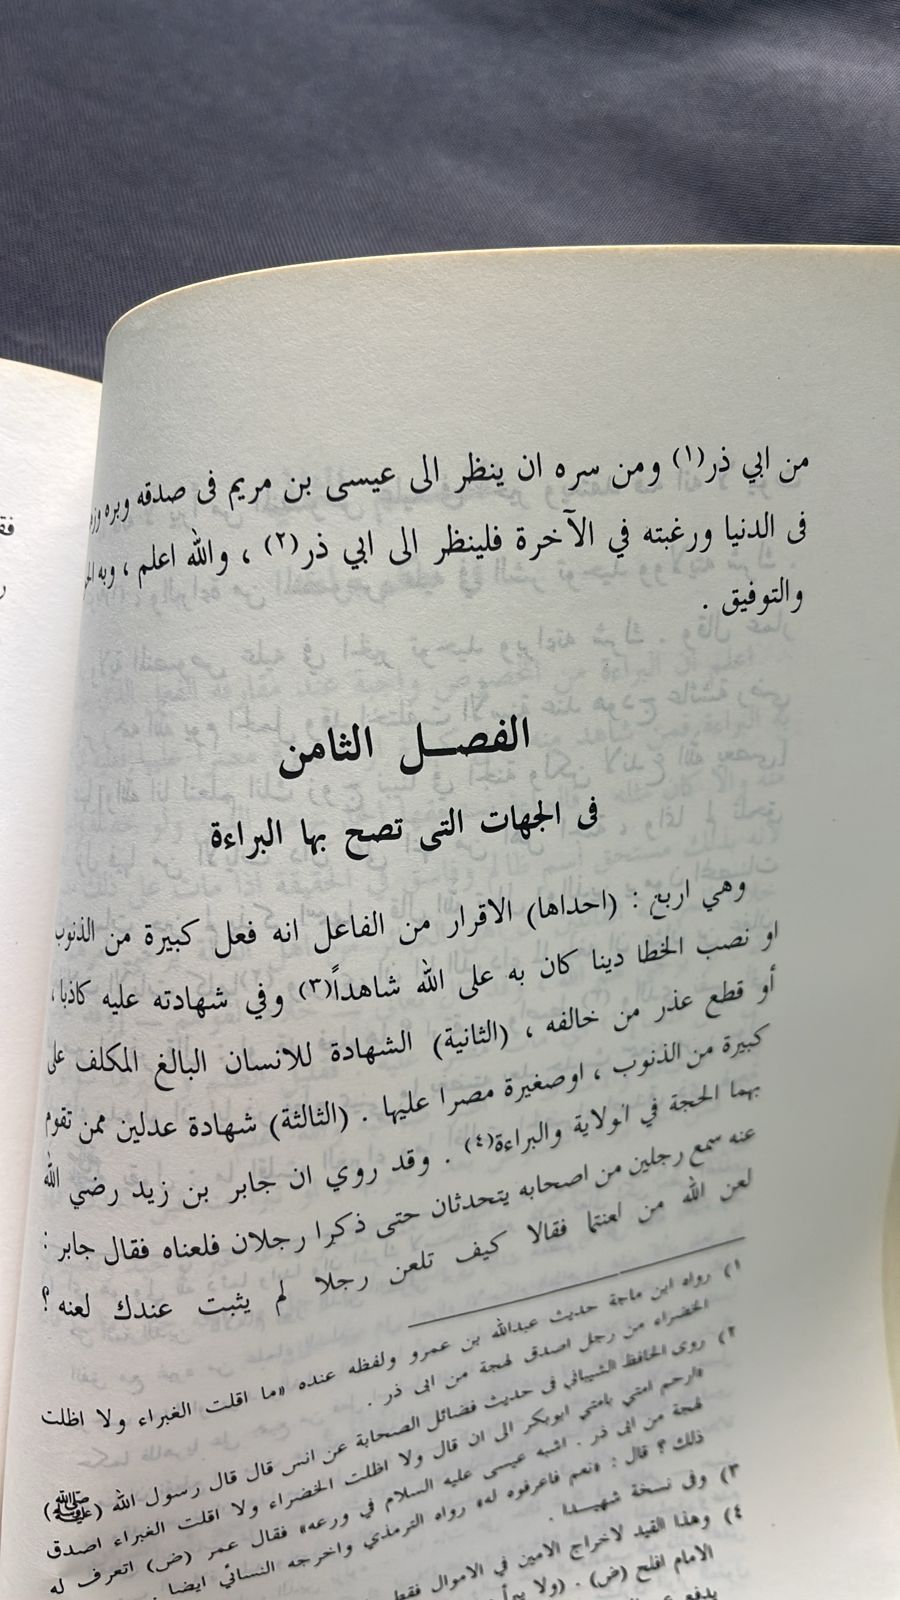 من ابي ذر(١) ومن سره ان ينظر الى عيسى بن مريم فى صدقه وبره
فى الدنيا ورغبته في الآخرة فلينظر الى ابي ذر(٢) ، والله اعلم ، وبه
والتوفيق .
الفصل الثامن
فى الجهات التى تصح بها البراءة
وهي اربع : (احداها) الاقرار من الفاعل انه فعل كبيرة من الذنوب
او نصب الخطا دينا كان به على الله شاهداً(٣) وفي شهادته عليه كاذبا ،
أو قطع عذر من خالفه ، (الثانية) الشهادة للانسان البالغ المكلف على
كبيرة من الذنوب ، اوصغيرة مصرا عليها . (الثالثة) شهادة عدلين ممن تقوم
بهما الحجة في الولاية والبراءة(٤) . وقد روي ان جابر بن زيد رضي الله
عنه سمع رجلين من اصحابه يتحدثان حتى ذكرا رجلان فلعناه فقال جابر :
لعن الله من لعنتما فقالا كيف تلعن رجلا لم يثبت عندك لعنه ؟
١) رواه ابن ماجة حديث عبدالله بن عمرو ولفظه عنده «ما اقلت الغبراء ولا اظلت
الخضراء من رجل اصدق لهجة من ابى ذر .
٢) روى الحافظ الشيباني فى حديث فضائل الصحابة عن انس قال قال رسول الله (ﷺ)
«ارحم امتي بامتي ابوبكر الى ان قال ولا اظلت الخضراء ولا اقلت الغبراء اصدق
لهجة من ابى ذر . اشبه عيسى عليه السلام في ورعه» فقال عمر (ض) اتعرف له
ذلك ؟ قال : «نعم فاعرفوه له» رواه الترمذي واخرجه النسائي ايضا
٣) وفى نسخة شهيدا .
٤) وهذا القيد لاخراج الامين في الاموال فقط
الامام افلح (ض) . (ولا
يدفع